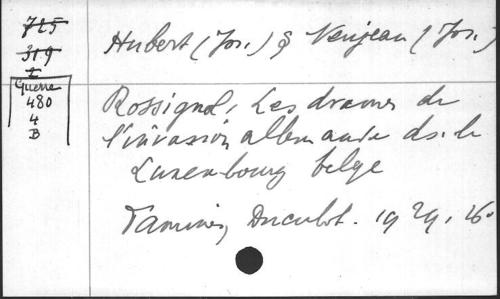 725
319
I
Guerre
480
4
B
Hubert (Jos.) & Neujean (Jos.)
Rossignol, Les drames de
l'invasion allemande ds. le
Luxembourg belge
Tamines, Duculot. 1929, 16o